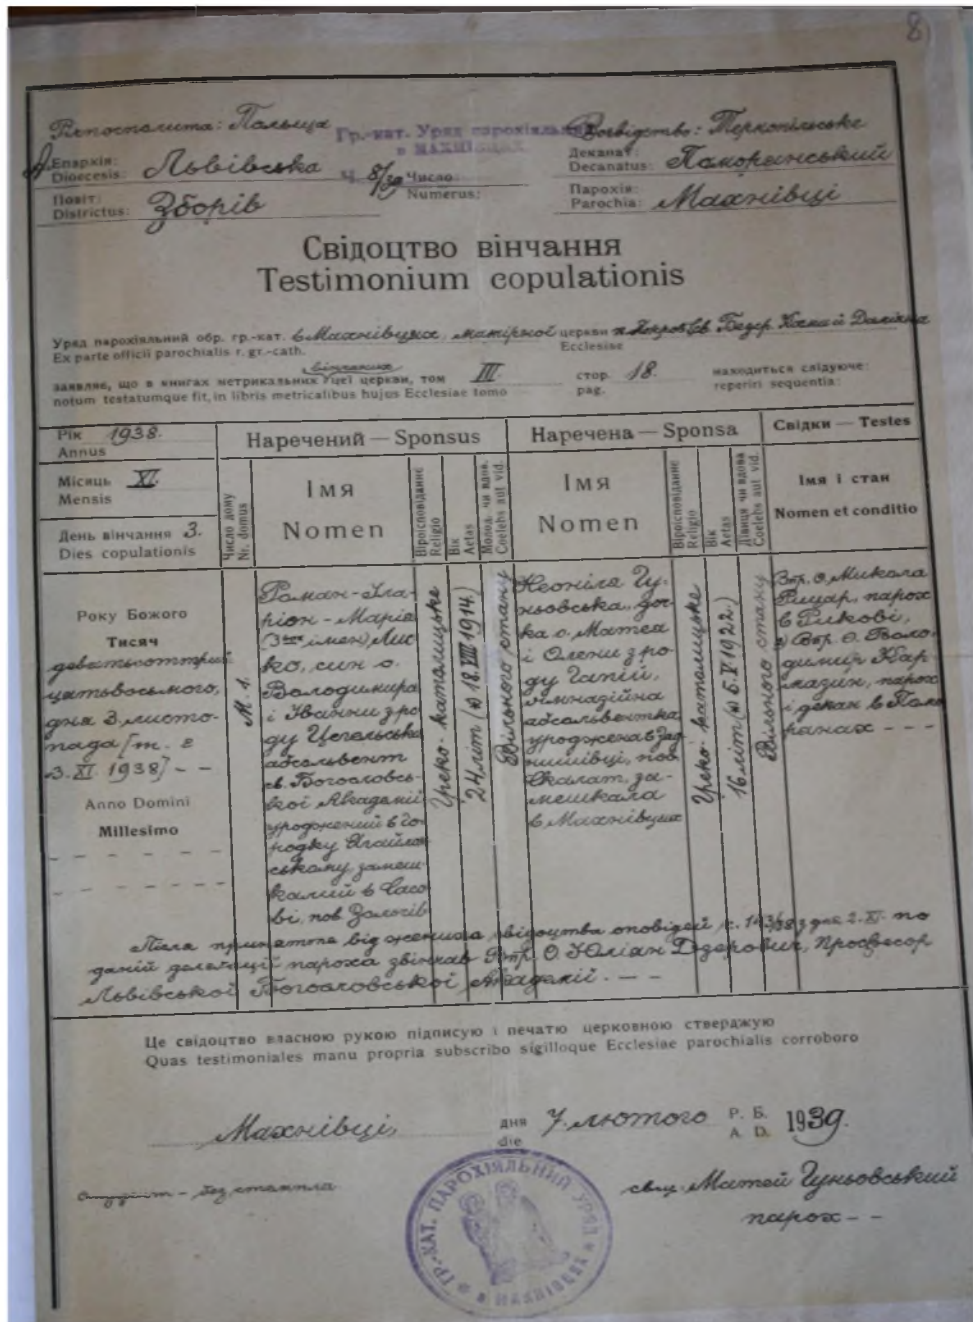 8
Річпосполита: Польща
Гр.-кат. Уряд парохіяльний
в МАХНІВЦЯХ
Воєвідство: Теркопільське
А. Епархія: Львівська
Dioecesis:
ч. 8/39 Число:
Numerus:
Деканат: Поморянський
Decanatus:
Повіт: Зборів
Districtus:
Парохія: Махнівці
Parochia:
Свідоцтво вінчання
Testimonium copulationis
Уряд парохіяльний обр. гр.-кат. в Махнівцях, матірної церкви п. Покров Св. Безср. Косми й Даміяна
Ex parte officii parochialis r. gr.-cath. Ecclesiae
вінчаних
заявляє, що в книгах метрикальних тцеї церкви, том III. стор. 18. находиться слідуюче:
notum testatumque fit, in libris metricalibus hujus Ecclesiae tomo pag. reperiri sequentia:
Рік 1938.
Annus
Наречений — Sponsus
Наречена — Sponsa
Свідки — Testes
Місяць XI.
Mensis
День вінчання 3.
Dies copulationis
Число дому
Nr. domus
Імя
Nomen
Віроісповіданне
Religio
Вік
Aetas
Молод. чи вдов.
Coelebs aut vid.
Імя
Nomen
Віроісповіданне
Religio
Вік
Aetas
Дівиця чи вдова
Coelebs aut vid.
Імя і стан
Nomen et conditio
Року Божого
Тисяч
девятьсоттрий
цятьвосьмого,
дня 3. листо-
пада [т. є
3. XI. 1938] - -
Anno Domini
Millesimo
М. 1.
Роман-Іла-
ріон-Марія
(3-ох імен) Лис-
ко, син о.
Володимира
і Іванни з ро-
ду Цегельська
абсольвент
гр. Богословсь-
кої Академії
уроджений в Го-
родку Ягайлон-
ському, замеш-
калий в Сасо-
ві, пов. Золочів
Греко-католицьке
24 літ (н) 18.VIII 1914.)
Вільного стану
Неоніля Гу-
ньовська, доч-
ка о. Матея
і Олени з ро-
ду Гапій,
гімназійна
абсольвентка
уроджена в Зад-
нишівці, пов.
Скалат, за-
мешкала
в Махнівцях
Греко-католицьке
16 літ (н) 5.V 1922.)
Вільного стану
Впр. О. Микола
Рицар, парох
в Пикові,
2) Впр. О. Воло-
димир Кар-
мазин, парох
і декан в Помо
рянах - - -
Після принаття від жениха свідоцтва оповідей ч. 143/38 з дня 2. XI. по
даній делегації пароха звінчав Впр. О Юліян Дзерович, Професор
Львівської Богословської Академії. - -
Це свідоцтво власною рукою підписую і печатю церковною стверджую
Quas testimoniales manu propria subscribo sigilloque Ecclesiae parochialis corroboro
Махнівці, дня 7. лютого Р. Б. 1939.
die A. D.
студент - без стемпля
свщ. Матей Гуньовський
парох - -
ГР.-КАТ. ПАРОХІЯЛЬНИЙ УРЯД в МАХНІВЦЯХ